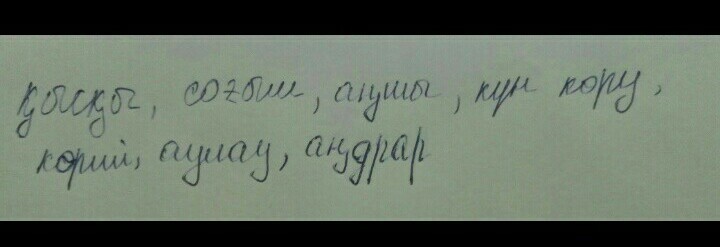 қысқы, соғым, аңшы, күн көру,
көрші, аулау, аң